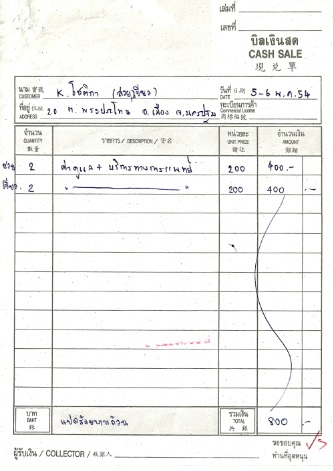 เล่มที่
เลขที่
บิลเงินสด
CASH SALE
現兌單
นาม
CUSTOMER
K. โชติกา (สวย, เขียว)
วันที่
DATE
5-6 พ.ค. 54
ที่อยู่
ADDRESS
20 ต. พระประโทน อ. เมือง จ. นครปฐม
ทะเบียนการค้า
จำนวน
QUANTITY
รายการ / DESCRIPTION /
หน่วยละ
UNIT PRICE
จำนวนเงิน
AMOUNT
สวย 2 ค่าดูแล + บริการทางการแพทย์ 200 400.-
เขียว 2 " " 200 400 .
บาท
BAHT
แปดร้อยบาทถ้วน
รวมเงิน
TOTAL
800 -
ขอขอบคุณ
ท่านที่อุดหนุน
ผู้รับเงิน / COLLECTOR /